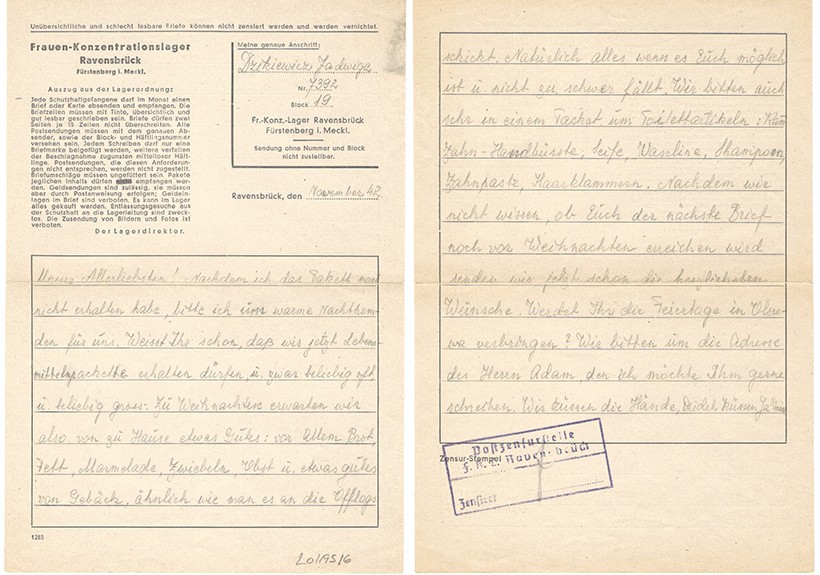 Unübersichtliche und schlecht lesbare Briefe können nicht zensiert werden und werden vernichtet.
Frauen-Konzentrationslager
Ravensbrück
Fürstenberg i. Meckl.
Auszug aus der Lagerordnung:
Jede Schutzhaftgefangene darf im Monat einen
Brief oder Karte absenden und empfangen. Die
Briefzeilen müssen mit Tinte, übersichtlich und
gut lesbar geschrieben sein. Briefe dürfen zwei
Seiten je 15 Zeilen nicht überschreiten. Alle
Postsendungen müssen mit dem genauen Ab-
sender, sowie der Block- und Häftlingsnummer
versehen sein. Jedem Schreiben darf nur eine
Briefmarke beigefügt werden, weitere verfallen
der Beschlagnahme zugunsten mittelloser Häft-
linge. Postsendungen, die diesen Anforderun-
gen nicht entsprechen, werden nicht zugestellt.
Briefumschläge müssen ungefüttert sein. Pakete
jeglichen Inhalts dürfen empfangen wer-
den. Geldsendungen sind zulässig, sie müssen
aber durch Postanweisung erfolgen; Geldein-
lagen im Brief sind verboten. Es kann im Lager
alles gekauft werden. Entlassungsgesuche aus
der Schutzhaft an die Lagerleitung sind zweck-
los. Die Zusendung von Bildern und Fotos ist
verboten.
Der Lagerdirektor.
Meine genaue Anschrift:
Dzikiewicz Jadwiga
Nr. 7392
Block 19
Fr.-Konz.-Lager Ravensbrück
Fürstenberg i. Meckl.
Sendung ohne Nummer und Block
nicht zustellbar.
Ravensbrück, den November 42.
Unsere Allerliebsten! Nachdem ich das Pakett
nicht erhalten habe, bitte ich um warme Nachthem-
den für uns. Weisst Ihr schon, daß wir jetzt Lebens-
mittelnpackette erhalten dürfen, u. zwar beliebig oft,
u. beliebig gross. Zu Weihnachten erwarten wir
also von zu Hause etwas Gutes: vor Allem Brot,
Fett, Marmelade, Zwiebeln, Obst u. etwas gutes
von Gebäck, ähnlich wie man es an die Offlags
1285
20/1AS/6
schickt. Natürlich alles wenn es Euch möglich
ist u. nicht zu schwer fällt. Wir bitten auch
sehr in einem um Toilettartikeln:
Zahn-Handbürste, Seife, Vaseline, Shampoon,
Zahnpasta, Haarklammern. Nachdem wir
nicht wissen, ob Euch der nächste Brief
noch vor Weihnachten erreichen wird
senden wir jetzt schon die herzlichsten
Wünsche. Werdet Ihr die Feiertage in
verbringen? Wir bitten um die Adresse
des Herrn Adam, den ich möchte Ihm gerne
schreiben. Wir küssen die Hände,
Zensur-Stempel
Postzensurstelle
F. K. L. Ravensbrück
Zensiert